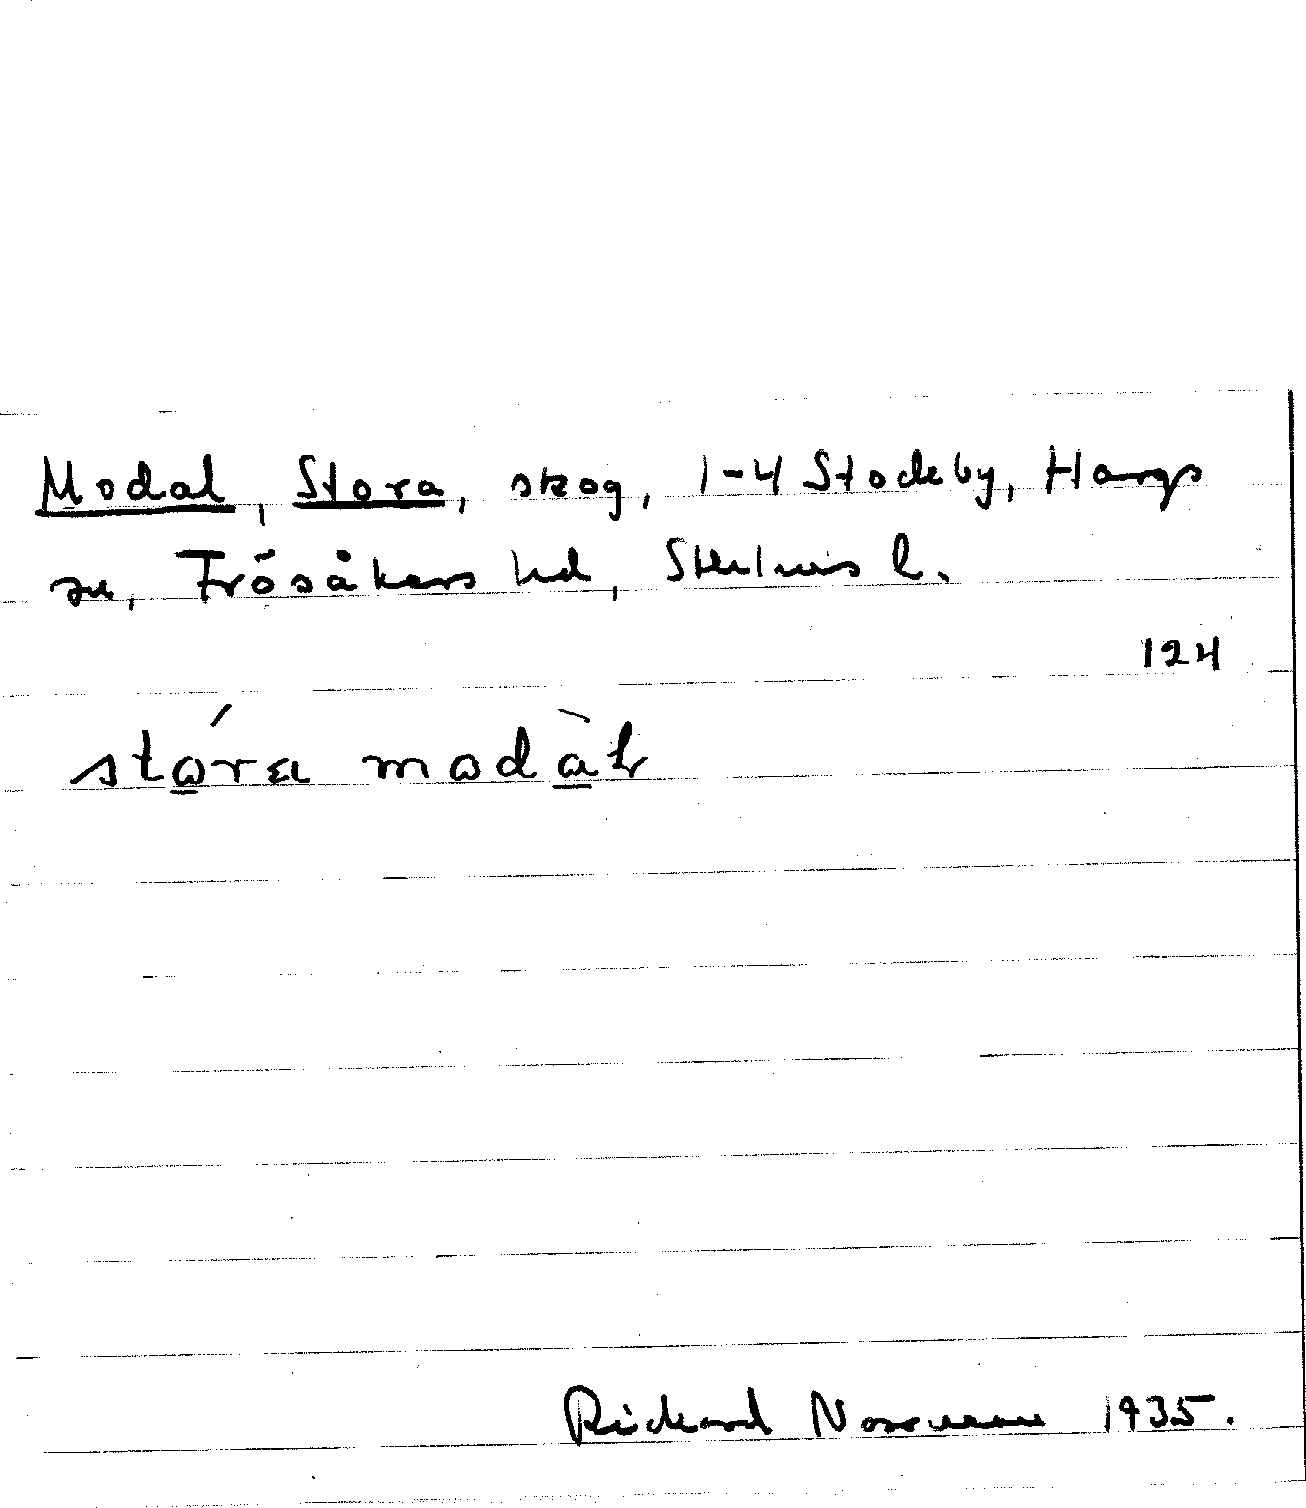 Modal, Stora, skog, 1-4 Stockby, Hargs
sn, Frösåkers hd, Sthlms l.
124
stóra modàl
Rickard Norrman 1935.